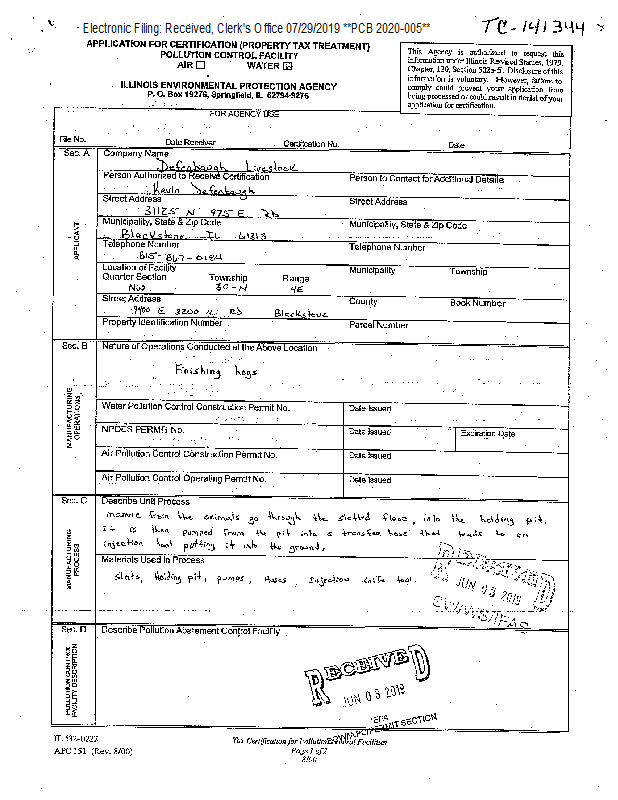 Electronic Filing: Received, Clerk's Office 07/29/2019 **PCB 2020-005**
TC-141344
APPLICATION FOR CERTIFICATION (PROPERTY TAX TREATMENT)
POLLUTION CONTROL FACILITY
AIR ☐ WATER ☒
ILLINOIS ENVIRONMENTAL PROTECTION AGENCY
P. O. Box 19276, Springfield, IL 62794-9276
This Agency is authorized to request this
information under Illinois Revised Statutes, 1979,
Chapter, 120, Section 502a-5. Disclosure of this
information is voluntary. However, failure to
comply could prevent your application from
being processed or could result in denial of your
application for certification.
FOR AGENCY USE
File No. Date Received Certification No. Date
Sec. A Company Name
Defenbaugh Livestock
Person Authorized to Receive Certification Person to Contact for Additional Details
Kevin Defenbaugh
Street Address Street Address
31125 N 975 E Rd
Municipality, State & Zip Code Municipality, State & Zip Code
Blackstone IL 61313
Telephone Number Telephone Number
815-867-0184
Location of Facility Municipality Township
Quarter Section Township Range
30-N 4E
Street Address County Book Number
9400 E 3200 N Rd Blackstone
Property Identification Number Parcel Number
APPLICANT
Sec. B Nature of Operations Conducted at the Above Location
Finishing hogs
Water Pollution Control Construction Permit No. Date Issued
NPDES PERMIS No. Date Issued Expiration Date
Air Pollution Control Construction Permit No. Date Issued
Air Pollution Control Operating Permit No. Date Issued
MANUFACTURING
OPERATIONS
Sec. C Describe Unit Process
manure from the animals go through the slatted floor, into the holding pit.
It is then pumped from the pit into a transfer hose that leads to an
injection tool putting it into the ground.
Materials Used in Process
slats, Holding pit, pumps, Hoses, Injection knife tool.
MANUFACTURING
PROCESS
JUN 05 2019
Sec. D Describe Pollution Abatement Control Facility
POLLUTION CONTROL
FACILITY DESCRIPTION
RECEIVED
JUN 05 2019
PERMIT SECTION
IL 532-0222
APC 151 (Rev. 8/00)
Tax Certification for Pollution Control Facilities
Page 1 of 2
8/00